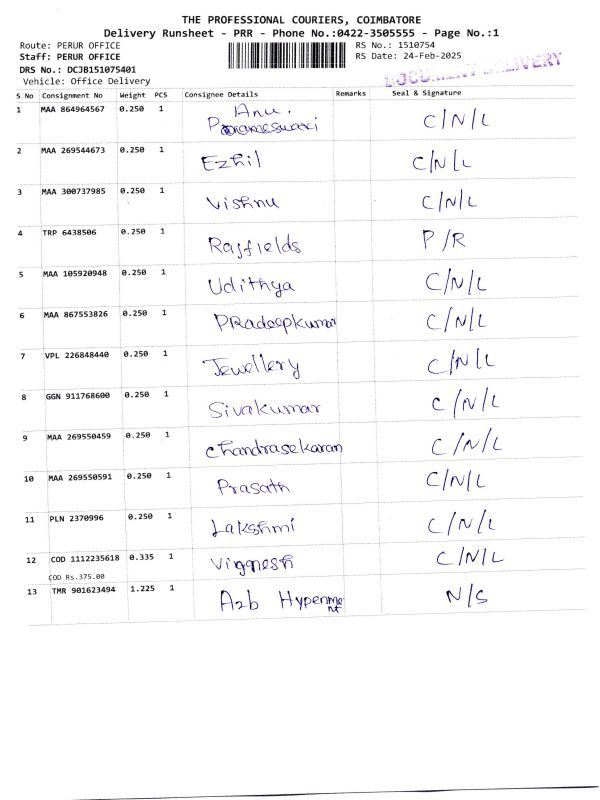 THE PROFESSIONAL COURIERS, COIMBATORE
Delivery Runsheet - PRR - Phone No.:0422-3505555 - Page No.:1
Route: PERUR OFFICE RS No.: 1510754
Staff: PERUR OFFICE RS Date: 24-Feb-2025
DRS No.: DCJB151075401
DOCUMENT DELIVERY
Vehicle: Office Delivery
S No Consignment No Weight PCS Consignee Details Remarks Seal & Signature
1 MAA 864964567 0.250 1 Anu. C/N/L
Parameswari
2 MAA 269544673 0.250 1 Ezhil C/N/L
3 MAA 300737985 0.250 1 Vishnu C/N/L
4 TRP 6438506 0.250 1 Rajfields P/R
5 MAA 105920948 0.250 1 Udithya C/N/L
6 MAA 867553826 0.250 1 PRadeepkumar C/N/L
7 VPL 226848440 0.250 1 Jewellery C/N/L
8 GGN 911768600 0.250 1 Sivakumar C/N/L
9 MAA 269550459 0.250 1 Chandrasekaran C/N/L
10 MAA 269550591 0.250 1 Prasath C/N/L
11 PLN 2370996 0.250 1 Lakshmi C/N/L
12 COD 1112235618 0.335 1 Vignesh C/N/L
COD Rs.375.00
13 TMR 901623494 1.225 1 A2b N/S